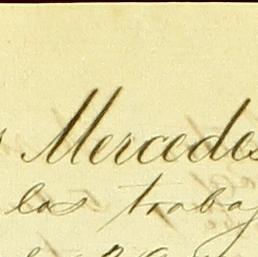 Mercedes
las trabaj